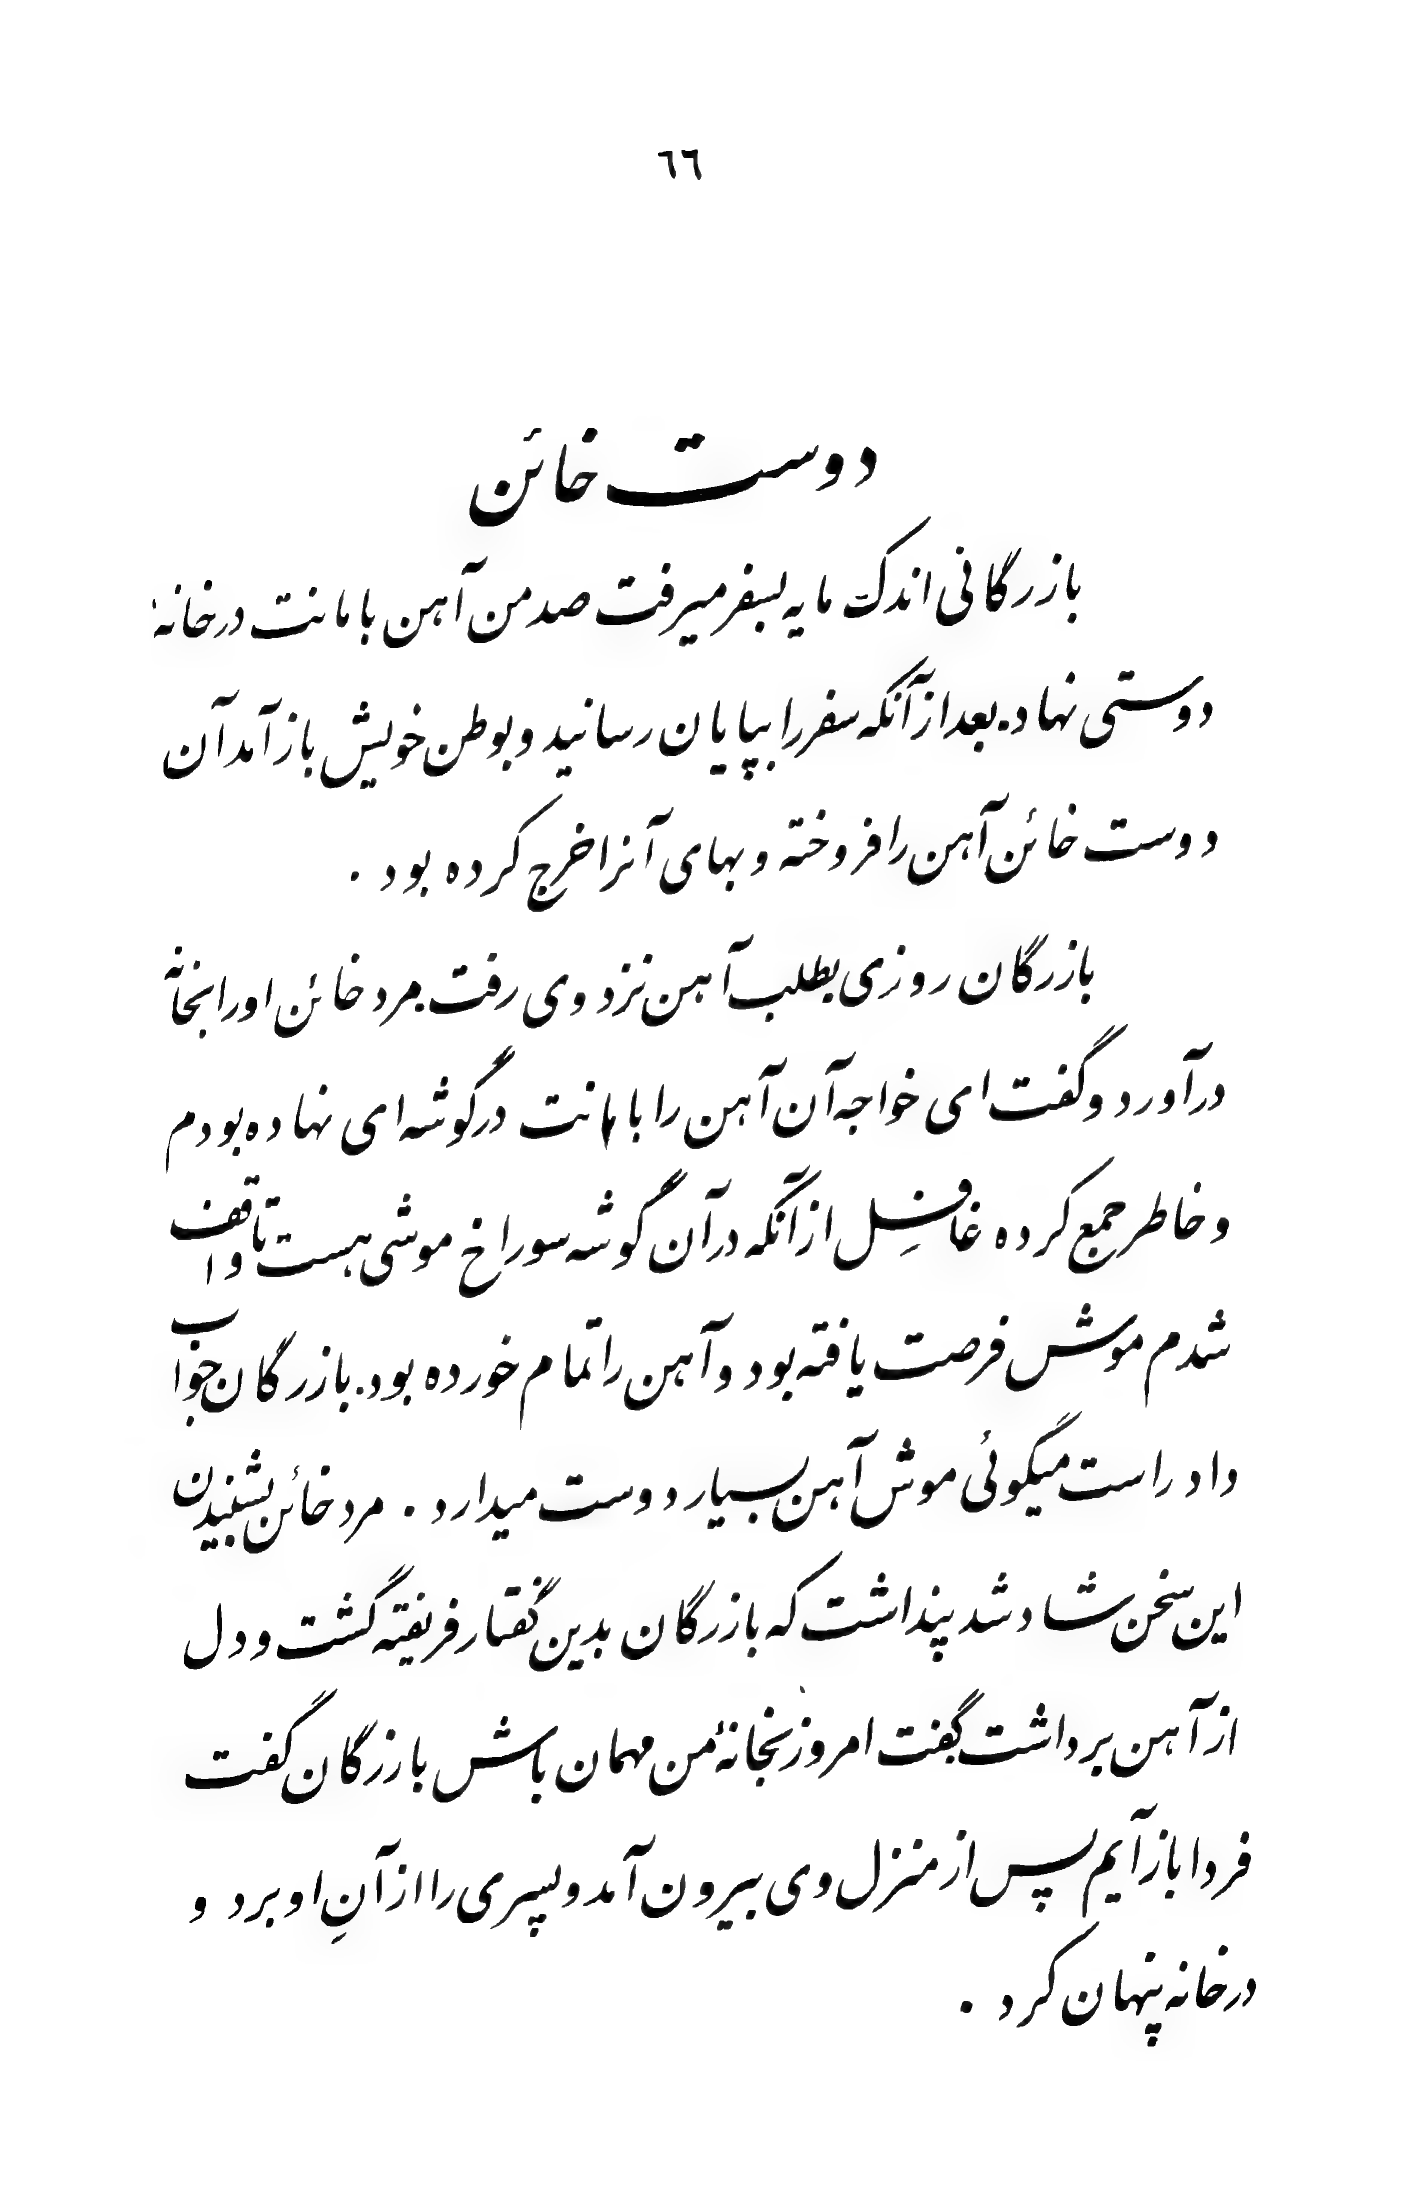 ٦٦
دوست خائن
بازرگانی اندک مایه بسفر میرفت صد من آهن بامانت در خانهٔ
دوستی نهاد. بعد از آنکه سفر را بپایان رسانید و بوطن خویش باز آمد آن
دوست خائن آهن را فروخته و بهای آنرا خرج کرده بود .
بازرگان روزی بطلب آهن نزد وی رفت. مرد خائن او را بخانه
درآورد و گفت ای خواجه آن آهن را بامانت در گوشه ای نهاده بودم
و خاطر جمع کرده غافِل از آنکه در آن گوشه سوراخ موشی هست تا واقف
شدم موش فرصت یافته بود و آهن را تمام خورده بود. بازرگان جواب
داد راست میگوئی موش آهن بسیار دوست میدارد . مرد خائن بشنیدن
این سخن شاد شد پنداشت که بازرگان بدین گفتار فریفته گشت و دل
از آهن برداشت گفت امروز بخانهٔ من مهمان باش بازرگان گفت
فردا باز آیم پس از منزل وی بیرون آمد و پسری را از آنِ او برد و
در خانه پنهان کرد .